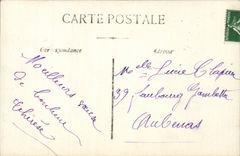 CARTE POSTALE
Correspondance
Adresse
Meilleurs
de bonheur
Thérèse
Melle Lucie
39 Faubourg Gambetta
Aubenas